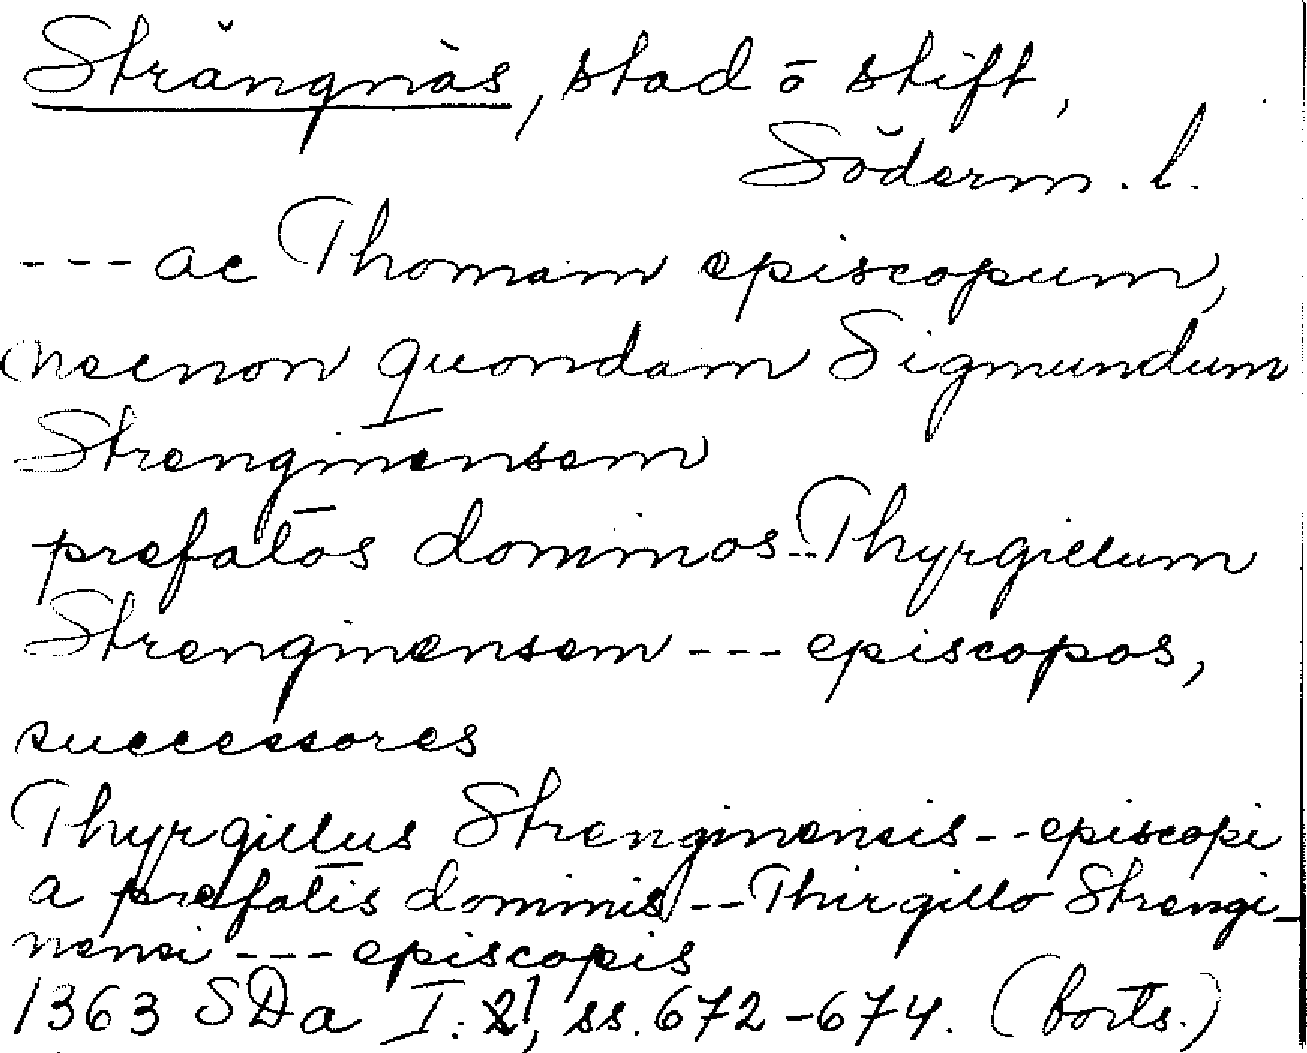 Strängnäs, stad o stift,
Söderm. l.
--- ac Thomam episcopum,
necnon quondam Sigmundum
Strenginensem
prefatos dominos -- Thyrgillum
Strenginensem --- episcopos,
successores
Thyrgillus Strenginensis -- episcopi
a prefatis dominis -- Thirgillo Strengi-
nensi --- episcopis
1363 SDa I: 21, ss. 672-674. (forts.)